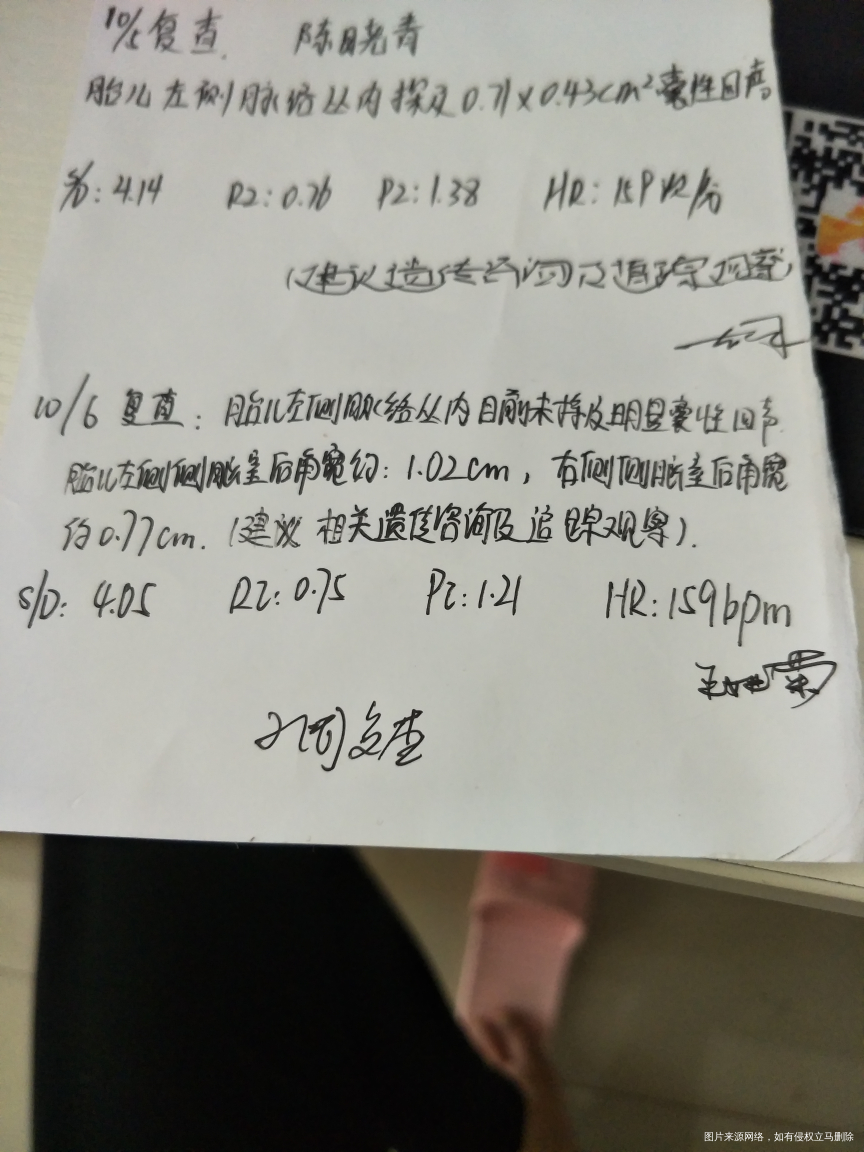 10/5 复查. 陈晓青
胎儿左侧脉络丛内探及0.71×0.43cm²囊性回声
S/D: 4.14 RI: 0.76 PI: 1.38 HR: 159次/分
(建议遗传咨询及追踪观察)
10/6 复查: 胎儿左侧脉络丛内目前未探及明显囊性回声.
胎儿左侧侧脑室后角宽约: 1.02cm, 右侧侧脑室后角宽
约0.77cm. (建议 相关遗传咨询及追踪观察).
S/D: 4.05 RI: 0.75 PI: 1.21 HR: 159bpm
2周复查
图片来源网络，如有侵权立马删除